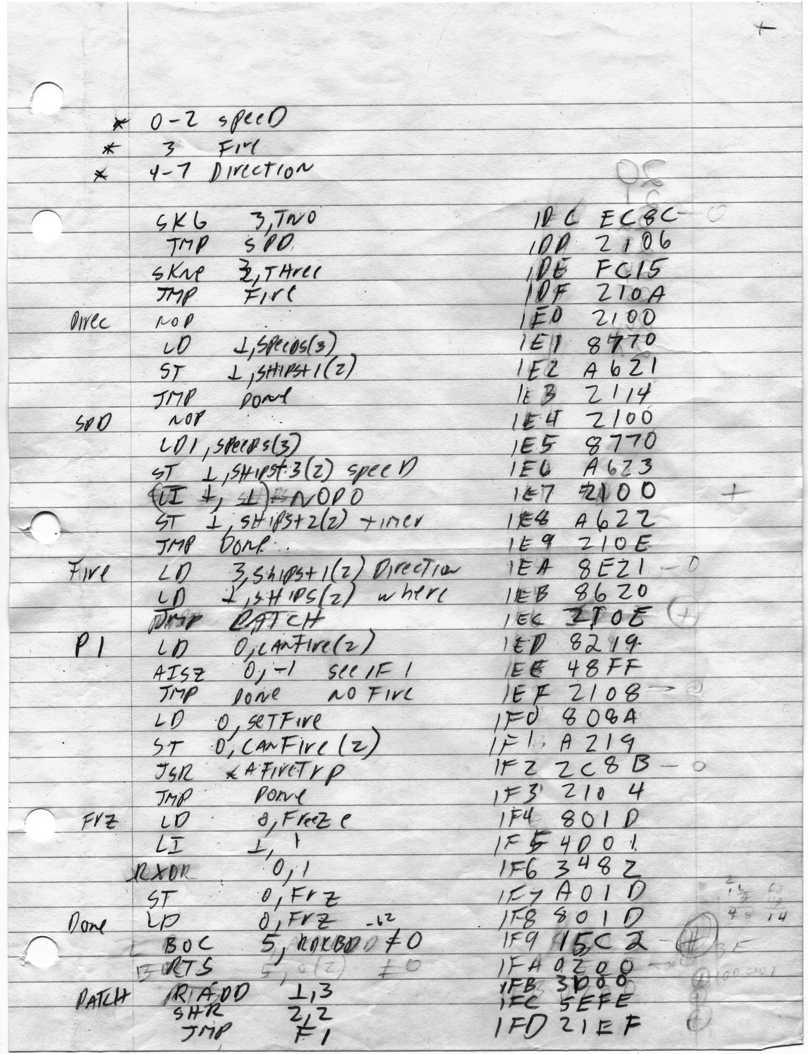 * 0-2 speeD
* 3 Fire
* 4-7 Direction
SKG 3,TWO 1DC EC8C
JMP SPD 1DD 2106
SKNE 3,THree 1DE FC15
JMP Fire 1DF 210A
Direc NOP 1E0 2100
LD 1,speeDs(3) 1E1 8770
ST 1,SHIPS+1(2) 1E2 A621
JMP Done 1E3 2114
SPD NOP 1E4 2100
LD1,speeDs(3) 1E5 8770
ST 1,SHIPS+3(2) speeD 1E6 A623
LI 1, NOP 0 1E7 2100 +
ST 1,SHIPS+2(2) timer 1E8 A622
JMP Done 1E9 210E
Fire LD 3,SHIPS+1(2) Direction 1EA 8E21 - 0
LD 1,SHIPS(2) where 1EB 8620
JMP PATCH 1EC 210E (+)
P1 LD 0,CANFire(2) 1ED 8219
AISZ 0,-1 see IF 1 1EE 48FF
JMP Done NO Fire 1EF 2108
LD 0,SETFire 1F0 808A
ST 0,CANFire(2) 1F1 A219
JSR *AFireTrp 1F2 2C8B - 0
JMP Done 1F3 2104
Frz LD 0,Freeze 1F4 801D
LI 1, 1 1F5 4D01
RXOR 0,1 1F6 3482
ST 0,Frz 1F7 A01D
Done LD 0,Frz 1F8 801D
BOC 5, ≠0 1F9 15C2
RTS 1FA 0200
PATCH RADD 1,3 1FB 3D00
SHR 2,2 1FC 5EFE
JMP F1 1FD 21EF